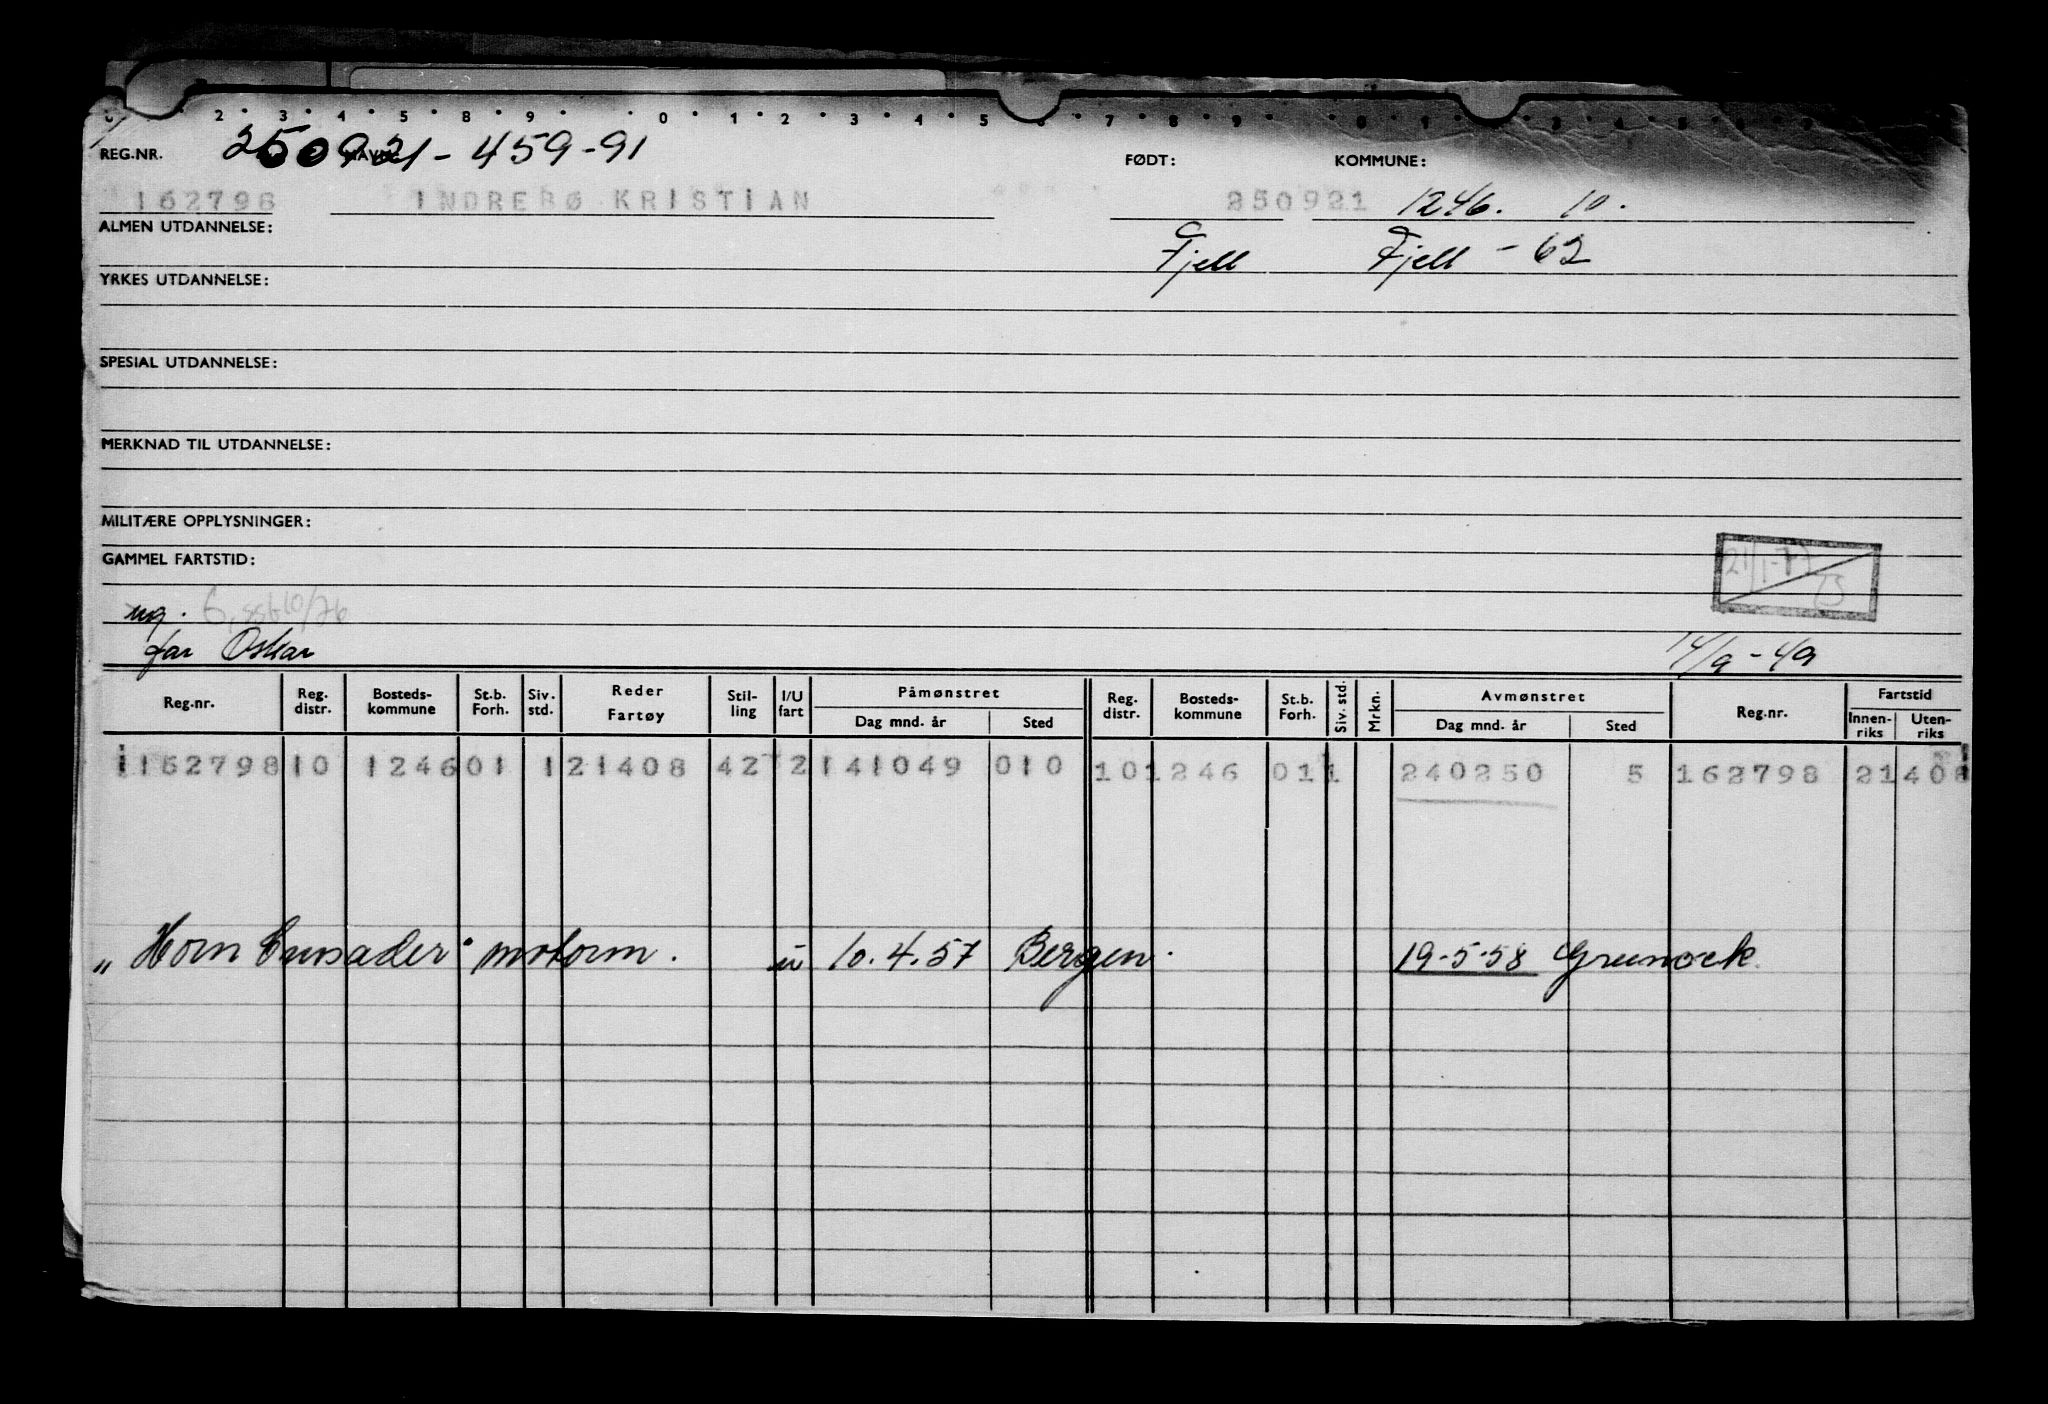 2 3 4 5 8 9 0 1 2 3 4 5 7 8 9 0
REG.NR. 250921-459-91 FØDT: KOMMUNE:
162798 INDREBØ KRISTIAN 250921 1246. 10.
ALMEN UTDANNELSE: Fjell Fjell - 62
YRKES UTDANNELSE:
SPESIAL UTDANNELSE:
MERKNAD TIL UTDANNELSE:
MILITÆRE OPPLYSNINGER:
GAMMEL FARTSTID:
ug.
far Oskar 14/9-49
Reg.nr. Reg. distr. Bosteds-kommune St.b. Forh. Siv. std. Reder Fartøy Stil-ling I/U fart Påmønstret Dag mnd. år Sted Reg. distr. Bosteds-kommune St.b. Forh. Siv. std. Mrkn. Avmønstret Dag mnd. år Sted Reg.nr. Fartstid Innen-riks Uten-riks
1162798 10 1246 01 1 21408 42 2 141049 010 10 1246 01 1 240250 5 162798 21 408
"Horn Crusader" motorm. u 10.4.57 Bergen. 19-5-58 Greenock.